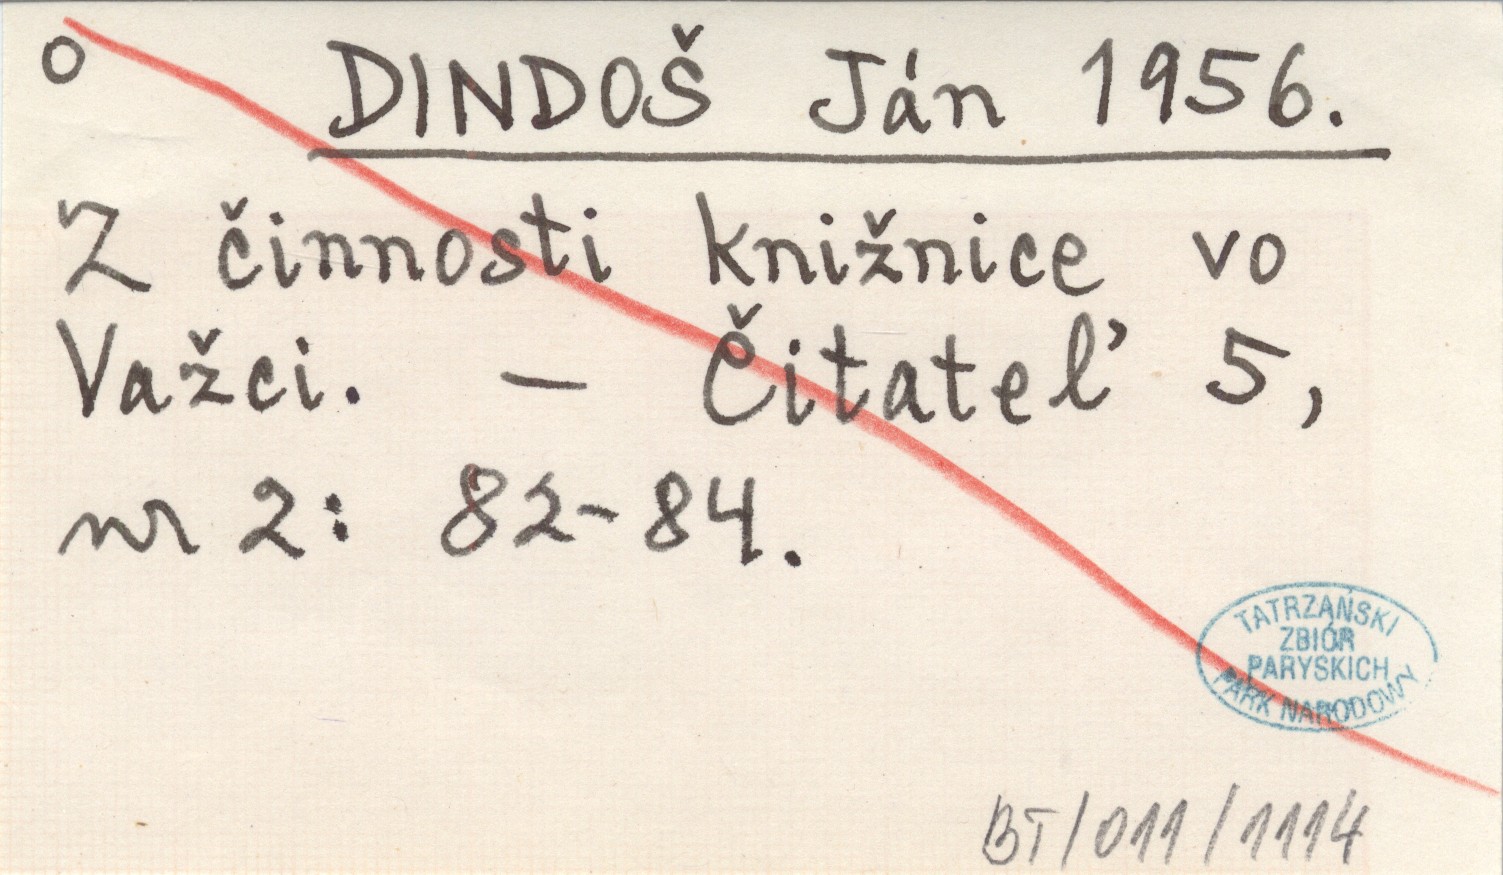 o DINDOŠ Ján 1956.
Z činnosti knižnice vo
Važci. – Čitateľ 5,
nr 2: 82-84.
TATRZAŃSKI
ZBIÓR
PARYSKICH
PARK NARODOWY
BT/011/1114